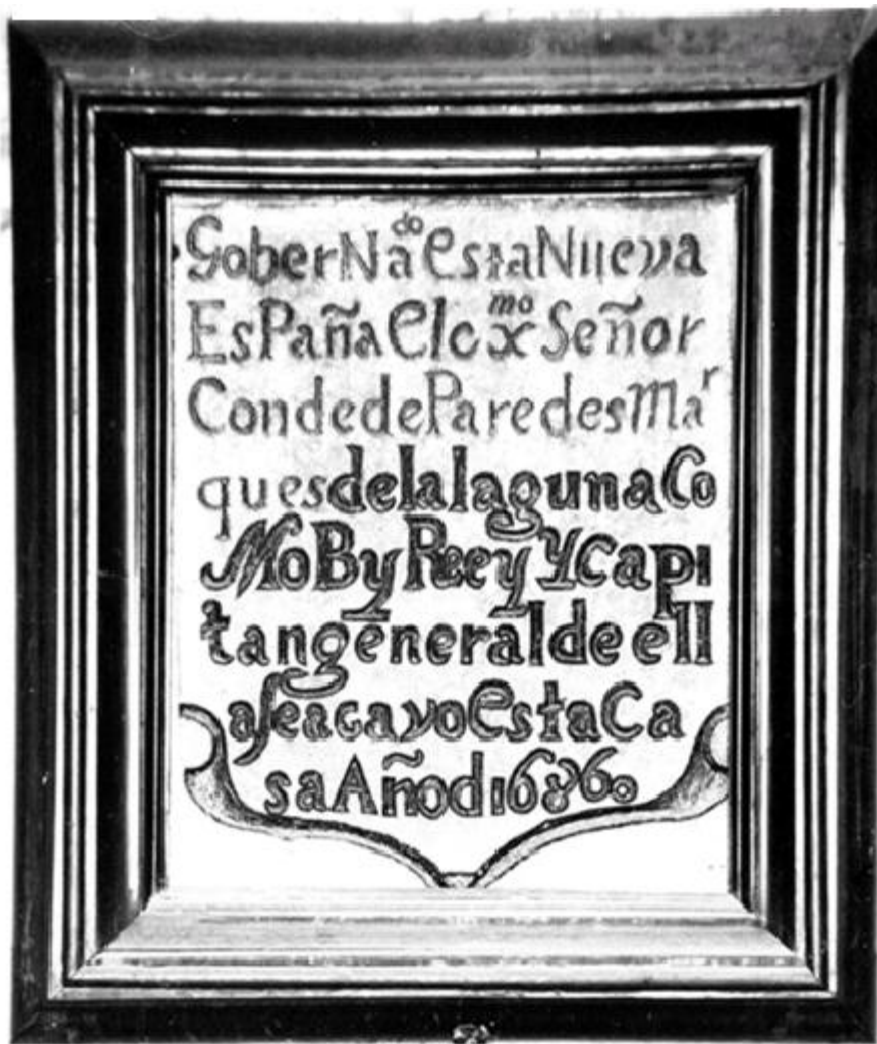 Goberna^do esta Nueva
EsPaña el cx^mo Señor
Conde de Paredes Ma^r
ques de la laguna Co
Mo By Reey Y Capi
tan general de ell
a se acavo esta Ca
sa Año d 1686o